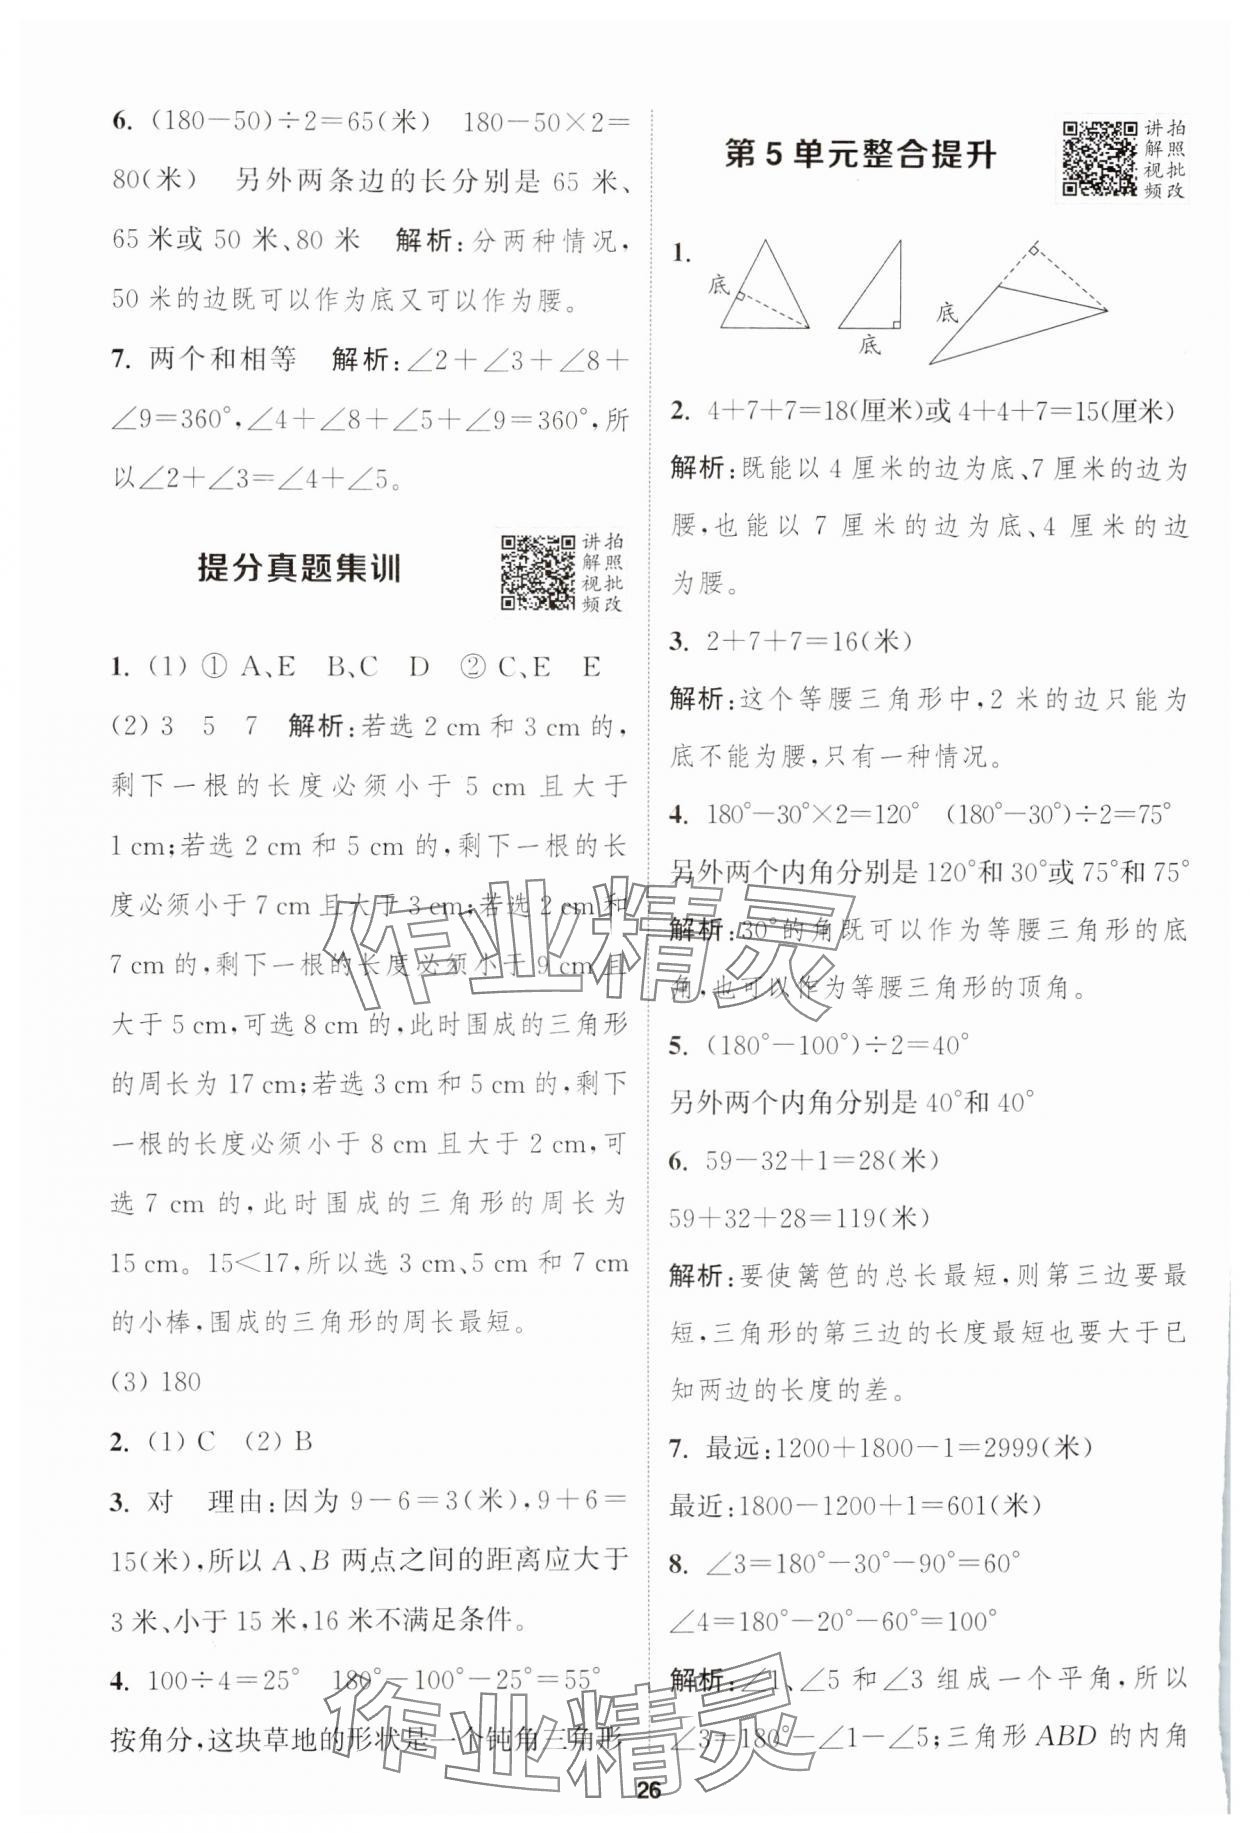 6. (180－50)÷2＝65(米)　180－50×2＝
80(米)　另外两条边的长分别是 65 米、
65 米或 50 米、80 米　解析:分两种情况，
50 米的边既可以作为底又可以作为腰。
7. 两个和相等　解析:∠2＋∠3＋∠8＋
∠9＝360°,∠4＋∠8＋∠5＋∠9＝360°,所
以∠2＋∠3＝∠4＋∠5。
提分真题集训
讲拍
解照
视批
频改
1. (1) ① A、E　B、C　D　② C、E　E
(2) 3　5　7　解析:若选 2 cm 和 3 cm 的，
剩下一根的长度必须小于 5 cm 且大于
1 cm;若选 2 cm 和 5 cm 的,剩下一根的长
度必须小于 7 cm 且大于 3 cm;若选 2 cm 和
7 cm 的,剩下一根的长度必须小于 9 cm 且
大于 5 cm,可选 8 cm 的,此时围成的三角形
的周长为 17 cm;若选 3 cm 和 5 cm 的,剩下
一根的长度必须小于 8 cm 且大于 2 cm,可
选 7 cm 的,此时围成的三角形的周长为
15 cm。15＜17,所以选 3 cm、5 cm 和 7 cm
的小棒,围成的三角形的周长最短。
(3) 180
2. (1) C　(2) B
3. 对　理由:因为 9－6＝3(米),9＋6＝
15(米),所以 A、B 两点之间的距离应大于
3 米、小于 15 米,16 米不满足条件。
4. 100÷4＝25°　180°－100°－25°＝55°
按角分,这块草地的形状是一个钝角三角形
第 5 单元整合提升
讲拍
解照
视批
频改
1.
底
底
底
2. 4＋7＋7＝18(厘米)或 4＋4＋7＝15(厘米)
解析:既能以 4 厘米的边为底、7 厘米的边为
腰,也能以 7 厘米的边为底、4 厘米的边
为腰。
3. 2＋7＋7＝16(米)
解析:这个等腰三角形中,2 米的边只能为
底不能为腰,只有一种情况。
4. 180°－30°×2＝120°　(180°－30°)÷2＝75°
另外两个内角分别是 120°和 30°或 75°和 75°
解析:30°的角既可以作为等腰三角形的底
角,也可以作为等腰三角形的顶角。
5. (180°－100°)÷2＝40°
另外两个内角分别是 40°和 40°
6. 59－32＋1＝28(米)
59＋32＋28＝119(米)
解析:要使篱笆的总长最短,则第三边要最
短,三角形的第三边的长度最短也要大于已
知两边的长度的差。
7. 最远:1200＋1800－1＝2999(米)
最近:1800－1200＋1＝601(米)
8. ∠3＝180°－30°－90°＝60°
∠4＝180°－20°－60°＝100°
解析:∠1、∠5 和∠3 组成一个平角,所以
∠3＝180°－∠1－∠5;三角形 ABD 的内角
作业精灵
作业精灵
26